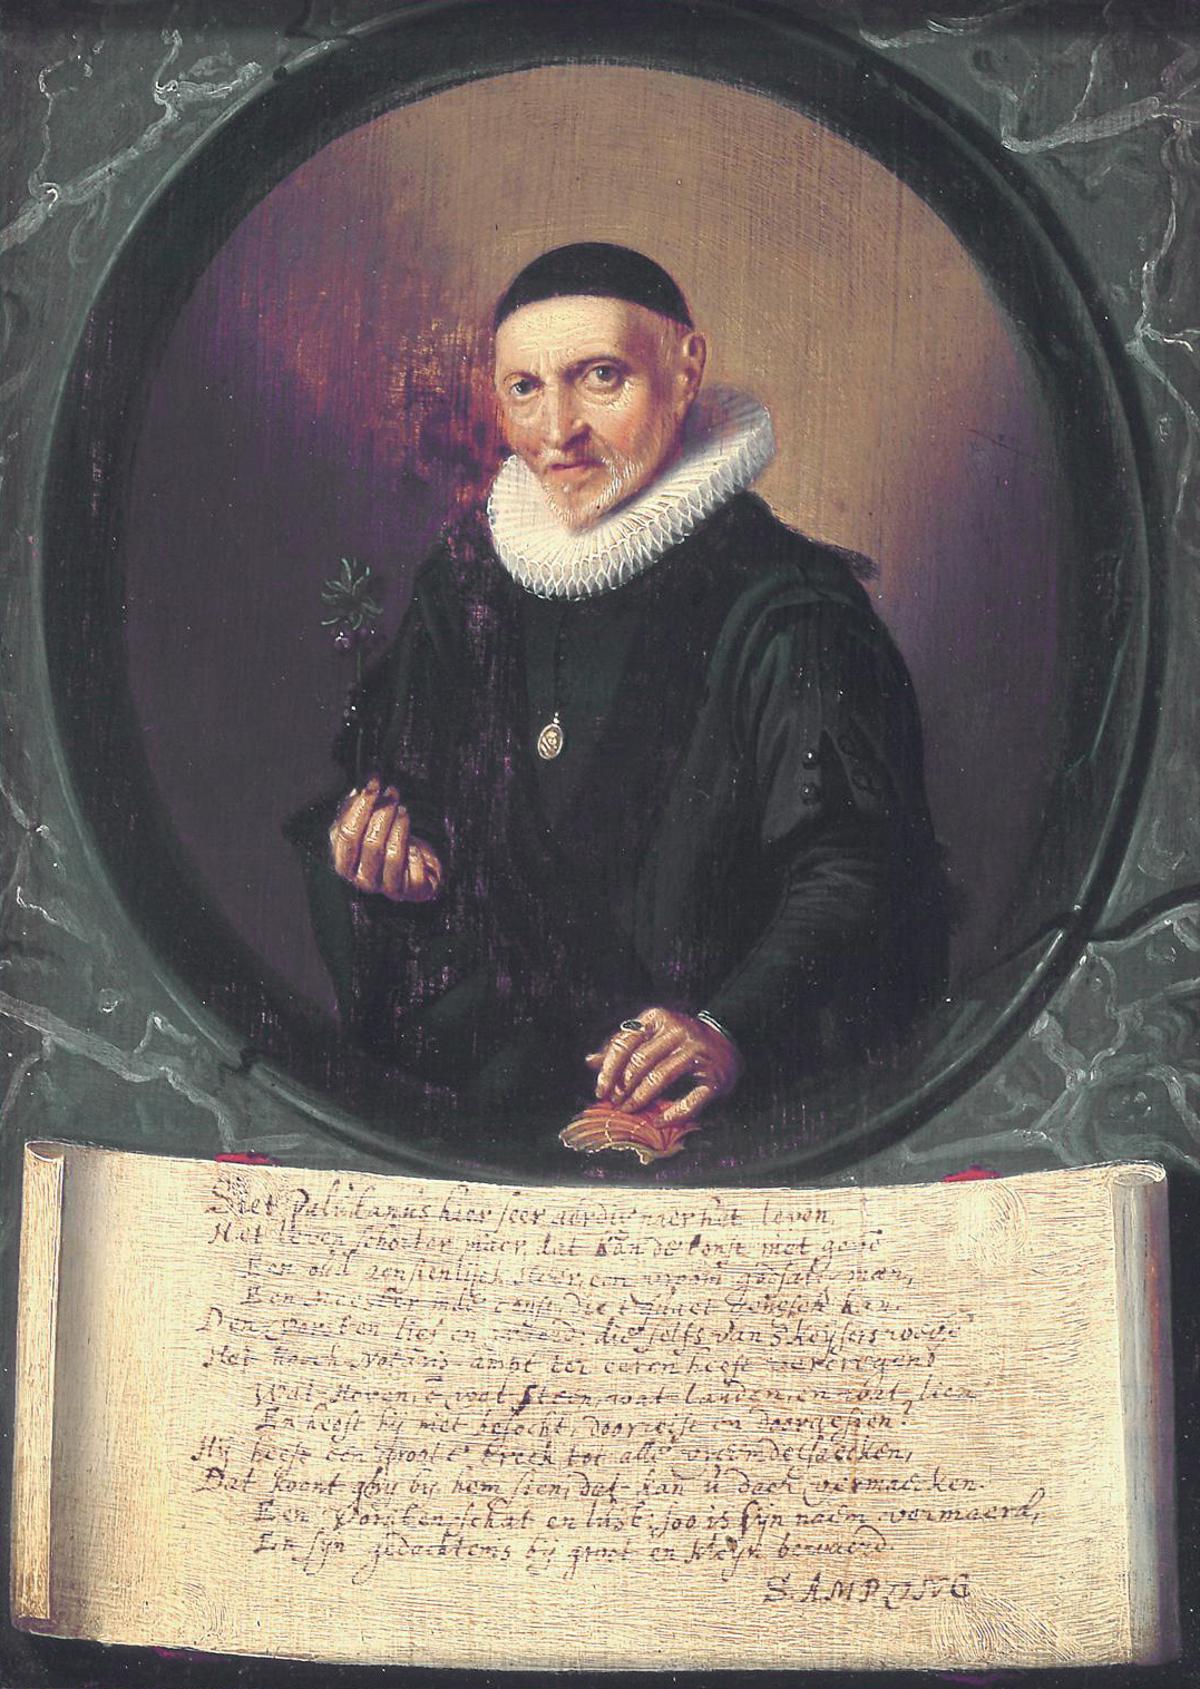 Siet Paludanus hier seer aerdig naer het leven,
Het leven schorter maer, dat kan de konst niet gevē
Een oud aensienlijck
Een meester die
Den vorsten lief en die selfs van s'keysers wege
Het hooch ampt ter eeren heeft
Wat Hoven, ē wat Steen, wat landen, en wat lien
En heeft hij niet besocht, doorreyst en doorgesien?
Hij heeft een groote treck tot alle vreemde saecken,
Dat kont ghij bij hem sien, dat kan u doch vermaecken.
Een Vorsten schat en lust, soo is sijn naem vermaerd,
En sijn gedachtems bij groot en kleyn bewaerd.
S. AMPSING